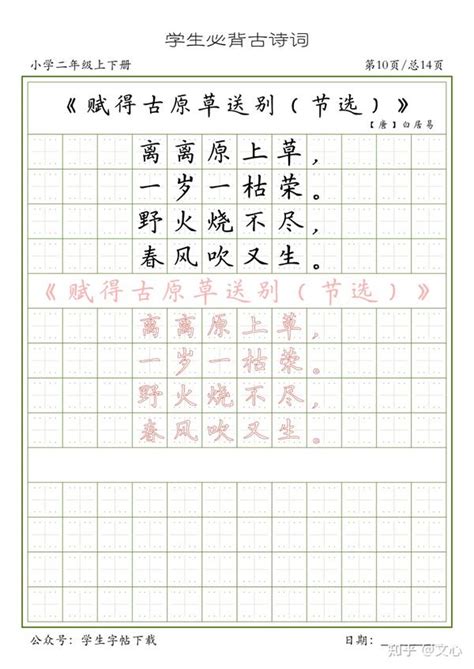 学生必背古诗词
小学二年级上下册 第10页/总14页
《赋得古原草送别(节选)》
【唐】白居易
离离原上草,
一岁一枯荣。
野火烧不尽,
春风吹又生。
《赋得古原草送别(节选)》
离离原上草,
一岁一枯荣。
野火烧不尽,
春风吹又生。
公众号:学生字帖下载 日期:
知乎 @文心